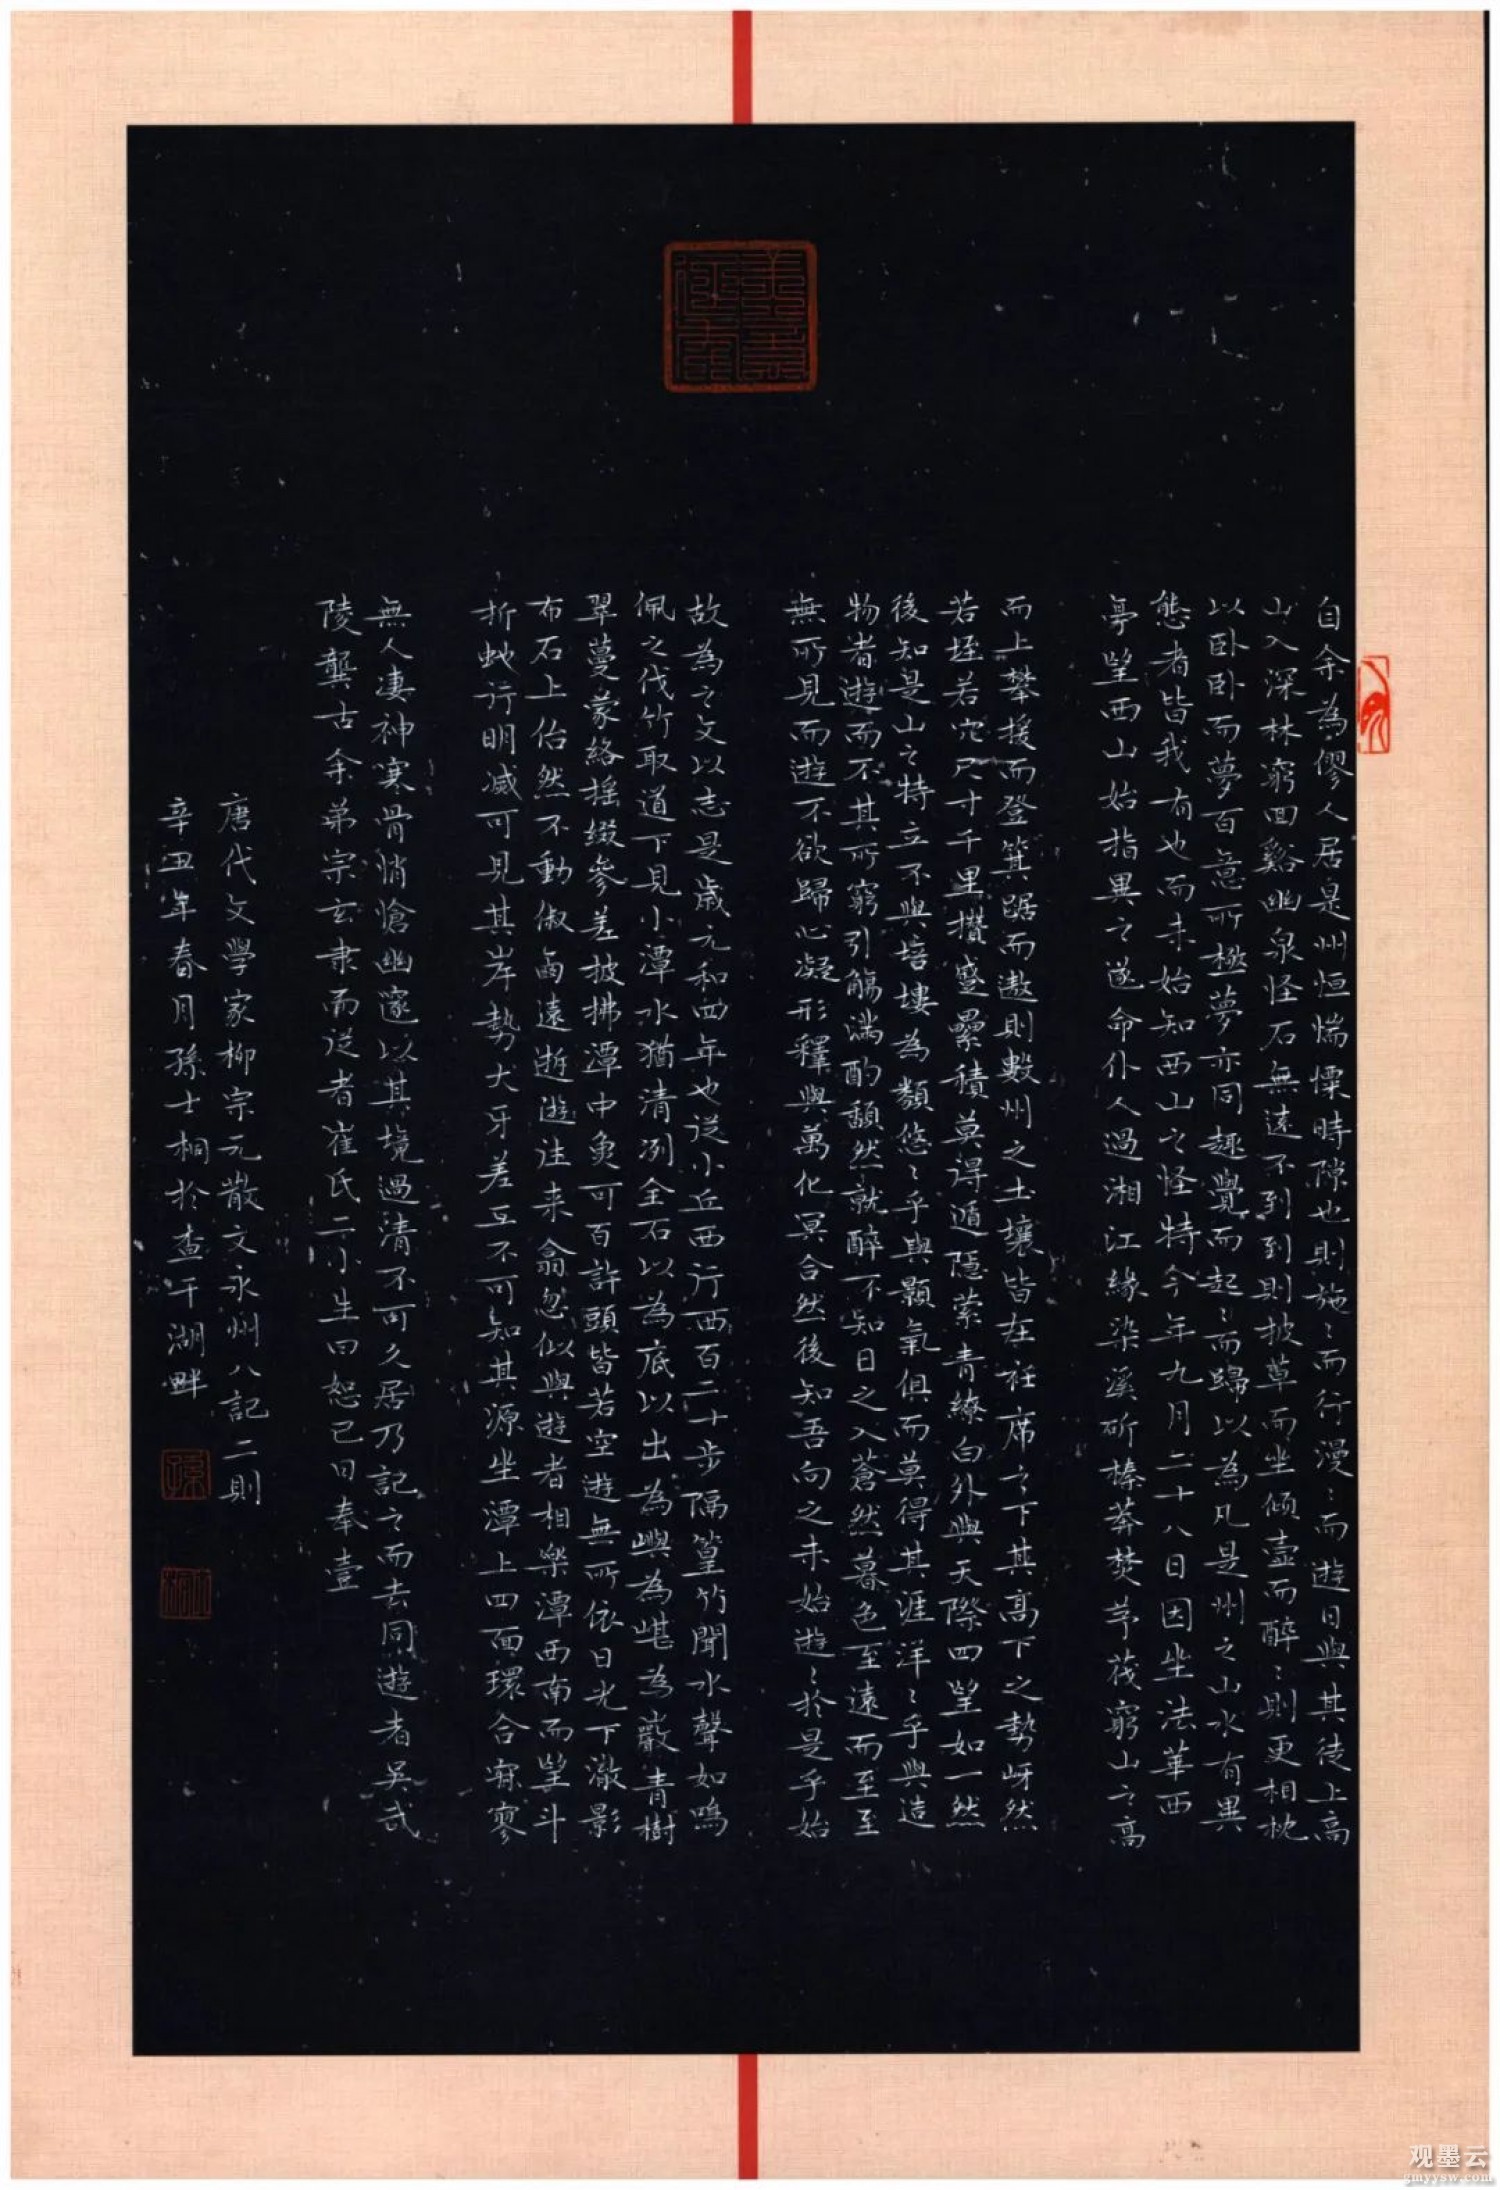 自余為僇人居是州恒惴慄時隙也則施〻而行漫〻而遊日與其徒上高
山入深林窮回谿幽泉怪石無遠不到到則披草而坐傾壺而醉〻則更相枕
以卧卧而夢百意所極夢亦同趣覺而起〻而歸以為凡是州之山水有異
態者皆我有也而未始知西山之怪特今年九月二十八日因坐法華西
亭望西山始指異之遂命仆人過湘江緣染溪斫榛莽焚茅茷窮山之高
而上攀援而登箕踞而遨則數州之土壤皆在衽席之下其高下之勢岈然
若垤若穴尺寸千里攢蹙累積莫得遁隱縈青繚白外與天際四望如一然
後知是山之特立不與培塿為類悠〻乎與顥氣俱而莫得其涯洋〻乎與造
物者遊而不其所窮引觴滿酌頹然就醉不知日之入蒼然暮色至遠而至至
無所見而遊不欲歸心凝形釋與萬化冥合然後知吾向之未始遊〻於是乎始
故為之文以志是歲元和四年也從小丘西行西百二十步隔篁竹聞水聲如鳴
佩之伐竹取道下見小潭水猶清洌全石以為底以出為嶼為嵁為巖青樹
翠蔓蒙絡搖綴參差披拂潭中魚可百許頭皆若空遊無所依日光下澈影
布石上佁然不動俶尔遠逝遊往来翕忽似與遊者相樂潭西南而望斗
折蛇行明滅可見其岸勢犬牙差互不可知其源坐潭上四面環合寂寥
無人凄神寒骨悄愴幽邃以其境過清不可久居乃記之而去同遊者吳武
陵龔古余弟宗玄隶而從者崔氏二小生曰恕己曰奉壹
唐代文學家柳宗元散文永州八記二則
辛丑年春月孫士桐於查干湖畔
观墨云
gmyysw.com